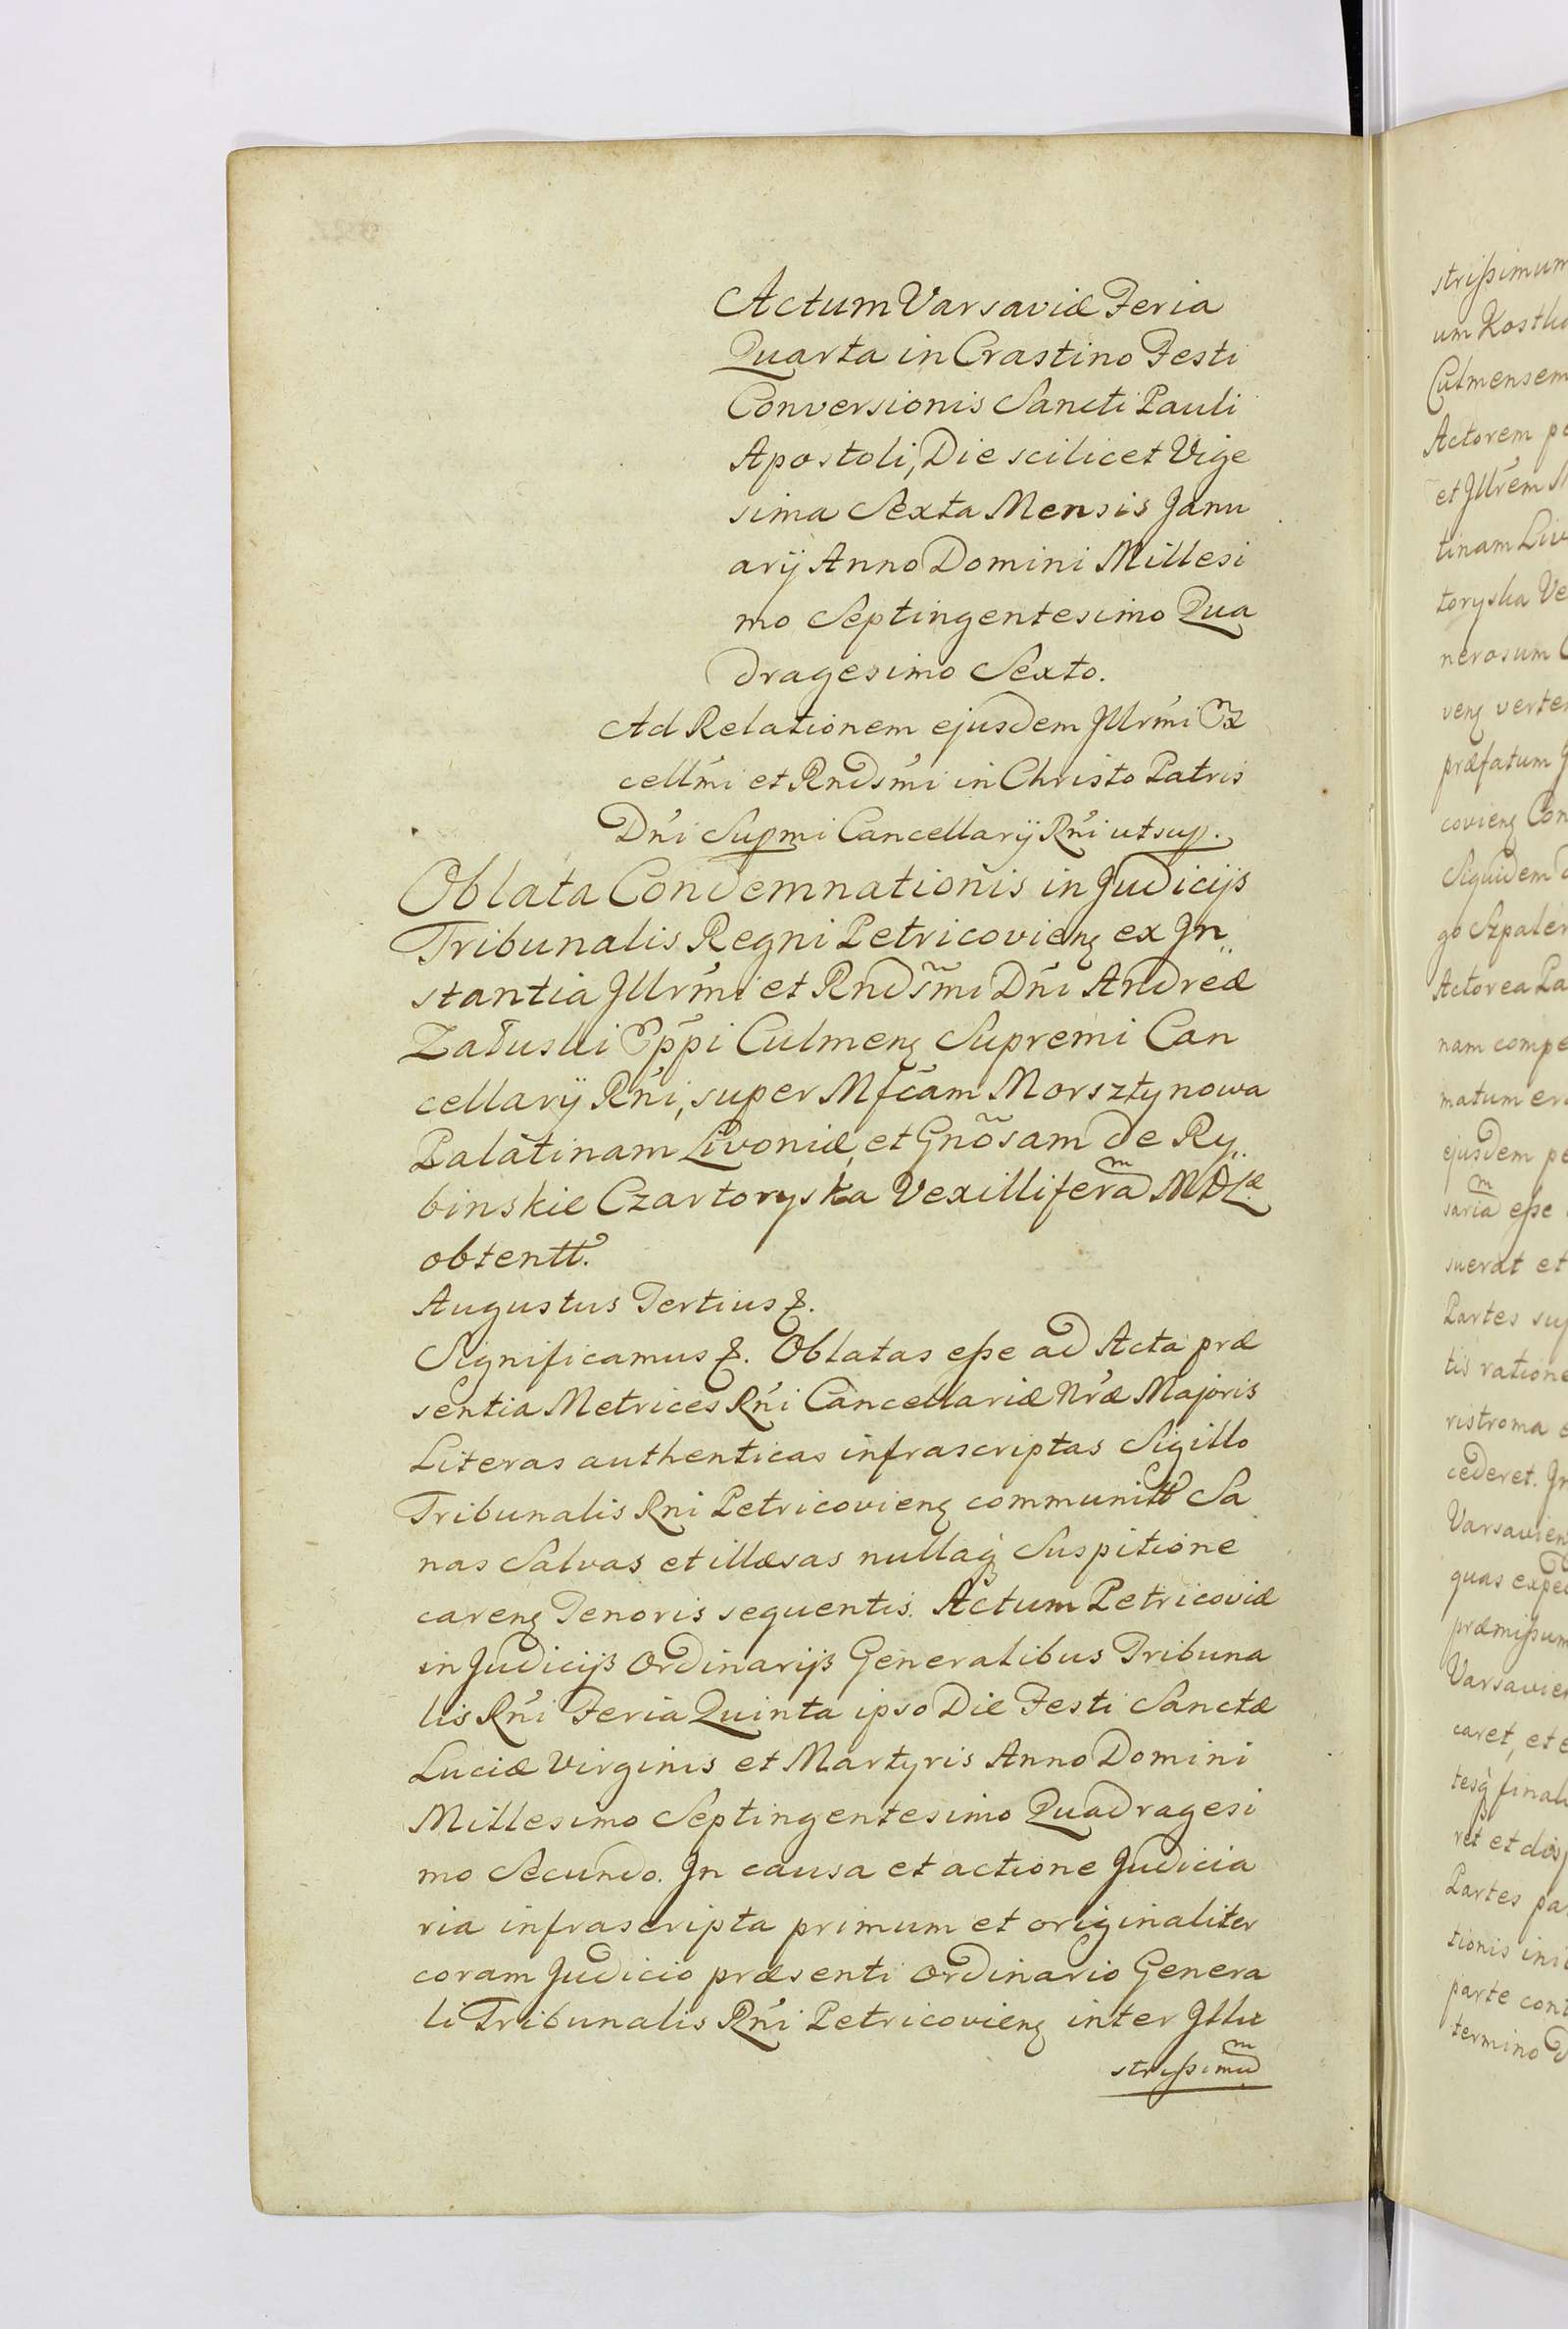 Actum Varsaviæ Feria
Quarta in Crastino Festi
Conversionis Sancti Pauli
Apostoli, Die scilicet Vige
sima Sexta Mensis Janu
arÿ Anno Domini Millesi
mo Septingentesimo Qua
dragesimo Sexto.
Ad Relationem ejusdem Jllrmi Ex
cellmi et Rndsmi in Christo Patris
Dni Supmi Cancellarÿ Rni ut sup.
Oblata Condemnationis in Judicijs
Tribunalis Regni Petricovienę ex Jn
stantia Jllrmi et Rndsmi Dni Andreæ
Załuski Eppi Culmenę Supremi Can
cellarÿ Rni, super Mfcam Morsztynowa
Palatinam Livoniæ, et Gnosam de Ry
binskie Czartoryska Vexilliferam MDLæ
obtentt.
Augustus Tertius &.
Significamus &. Oblatas eße ad Acta præ
sentia Metrices Rni Cancellariæ Nræ Majoris
Literas authenticas infrascriptas Sigillo
Tribunalis Rni Petricovienę communitt Sa
nas Salvas et illæsas nullaq Suspitione
carenę Tenoris sequentis. Actum Petricoviæ
in Judicijs Ordinarijs Generalibus Tribuna
lis Rni Feria Quinta ipso Die Festi Sanctæ
Luciæ Virginis et Martyris Anno Domini
Millesimo Septingentesimo Quadragesi
mo Secundo. Jn causa et actione Judicia
ria infrascripta primum et originaliter
coram Judicio præsenti Ordinario Genera
li Tribunalis Rni Petricovienę inter Jllu
strißimum
strißimum
um
Culmensem
Actorem
et Jllrem
tinam
toryska
nerosum
venę
præfatum
covienę
Siquidem
go
Actorea
nam
matum
ejusdem
sariam eße
suerat et
Partes
tis ratione
ristroma
cederet.
Varsavien
quas
præmißum
Varsavien
caret, et
tesq
ret et
Partes
tionis
parte
termino